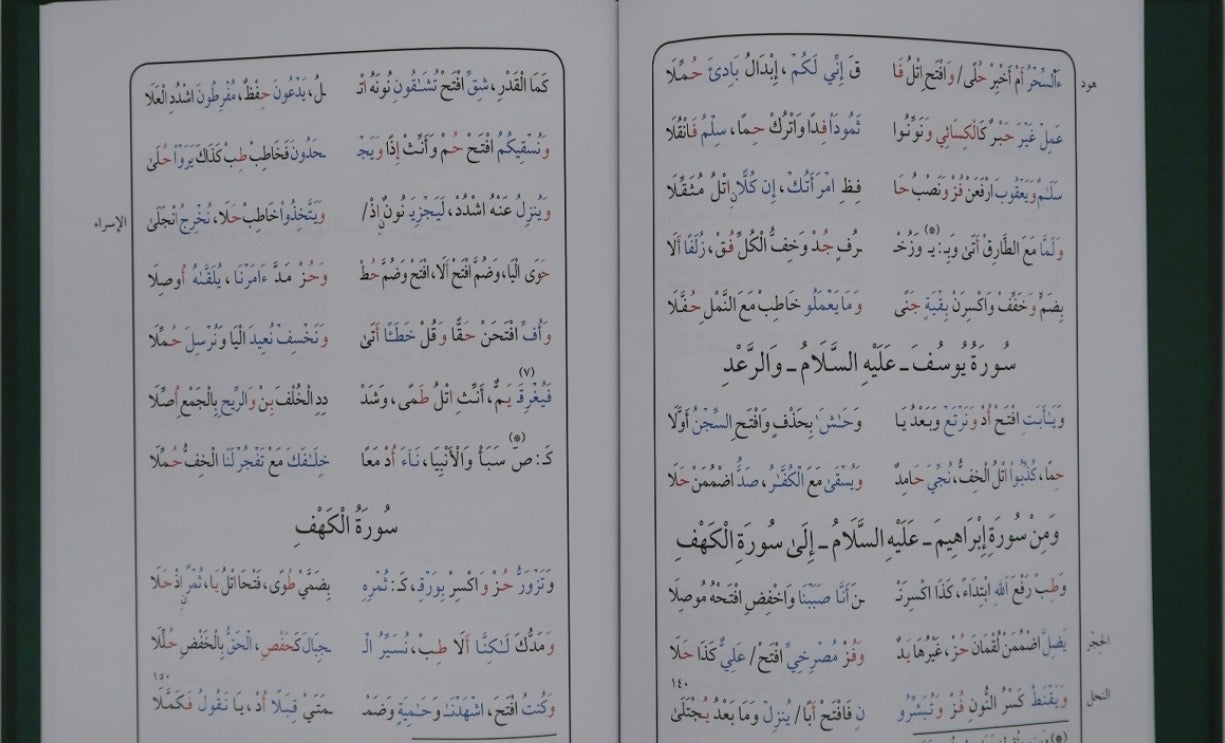 هود
ءَآلسِّحْرُ أَمْ أَخْبِرْ حُلًى / وَافْتَحِ اتْلُ فَا قَ إِنِّي لَكُمْ، إِبْدَالُ بَادِئَ حُمِّلَا
عَمِلْ غَيْرَ حَبْرٌ كَالْكِسَائِي وَنَوِّنُوا ثَمُودَاْ فِدًا وَاتْرُكْ حِمًا، سِلْمُ فَانْقُلَا
سَلَٰمٌ وَيَعْقُوبَ ارْفَعَنْ فُزْ وَنَصْبُ حَا فِظِ امْرَأَتُكَ، إِن كُلًّا اتْلُ مُثَقِّلَا
وَلَمَّا مَعَ الطَّارِقْ أَتَىٰ وَبِـ: يـَ وَزُخْـ (*) ـرُفٍ جُدْ وَخِفُّ الْكُلِّ فُقْ، زُلَفًا أَلَا
بِضَمٍّ وَخَفِّفْ وَاكْسِرَنْ بِقْيَةٍ جَنًى وَمَا يَعْمَلُو خَاطِبْ مَعَ النَّمْلِ حُفَّلَا
سُورَةُ يُوسُفَ ـ عَلَيْهِ السَّلَامُ ـ وَالرَّعْدِ
وَيَٰأَبَتِ افْتَحْ أُدْ وَنَرْتَعْ وَبَعْدُ يَا وَحَٰشَ بِحَذْفٍ وَافْتَحِ السِّجْنُ أَوَّلَا
حِمًا، كُذِّبُواْ اتْلُ الْخِفُّ، نُجِّيَ حَامِدٌ وَيُسْقَىٰ مَعَ الْكُفَّٰرُ، صَدُّ اضْمُمَنْ حَلَا
وَمِنْ سُورَةِ إِبْرَاهِيمَ ـ عَلَيْهِ السَّلَامُ ـ إِلَىٰ سُورَةِ الْكَهْفِ
وَطِبْ رَفْعَ اللهِ ابْتِدَاءً، كَذَا اكْسِرَنْـ ـنَ أَنَّا صَبَبْنَا وَاخْفِضِ افْتَحْهُ مُوصِلَا
الحِجْر
يَضِلَّ اضْمُمَنْ لُقْمَانَ حُزْ، غَيْرُهَا يَدٌ وَفُزْ مُصْرِخِيِّ افْتَحْ / عَلِيٌّ كَذَا حَلَا
١٤٠
النحل
وَيَقْنَطُ كَسْرُ النُّونِ فُزْ وَتُبَشِّرُو نِ فَافْتَحْ أَبًا / يُنْزِلُ وَمَا بَعْدُ يُجْتَلَىٰ
كَمَا الْقَدْرِ، شِقِّ افْتَحْ تُشَٰقُّونِ نُونَهُ اتْـ ـلُ، يَدْعُونَ حِفْظٌ، مُفْرِطُونَ اشْدُدِ الْعَلَا
وَنُسْقِيكُمُ افْتَحْ حُمْ وَأَنِّثْ إِذًا وَيَجْـ ـحَدُونَ فَخَاطِبْ طِبْ كَذَاكَ يَرَوْاْ حُلَىٰ
الإسراء
وَيُنْزِلُ عَنْهُ اشْدُدْ، لَيَجْزِيَ نُونٌ إِذْ / وَيَتَّخِذُواْ خَاطِبْ حَلَا، نُخْرِجُ انْجَلَىٰ
حَوَى الْيَا، وَضُمَّ افْتَحْ أَلَا، افْتَحْ وَضُمَّ حُطْ وَحُزْ مَدَّ ءَامَرْنَا، يُلَقَّىٰهُ أُوصِلَا
وَأُفِّ افْتَحَنْ حَقًّا وَقُلْ خَطَـًٔا أَتَىٰ وَنَخْسِفْ نُعِيدَ الْيَا وَنُرْسِلَ حُمِّلَا
فَيُغْرِقَ يَمٌّ، أَنِّثِ اتْلُ طَمًى، وَشَدْ (٧) دِدِ الْخُلْفَ بِنْ وَالرِّيحَ بِالْجَمْعِ أُصِّلَا
كَـ: صٓ سَبَأْ وَالْأَنْبِيَا، نَـَٔاءَ أُدْ مَعًا (*) خِلَٰفَكَ مَعْ تَفْجُرْ لَنَا الْخِفُّ حُمِّلَا
سُورَةُ الْكَهْفِ
وَتَزْوَرُّ حُزْ وَاكْسِرْ بِوَرْقِـ، كَـ: ثُمْرِهِ بِضَمَّيْ طُوًى، فَتْحَا اتْلُ يَا، ثُمْرٌ إِذْ حَلَا
وَمَدُّكَ لَٰكِنَّا أَلَا طِبْ، نُسَيِّرُ الْـ ـجِبَالَ كَحَفْصٍ، الْحَقُّ بِالْخَفْضِ حُلِّلَا
١٥٠
وَكُنْتُ افْتَحَ، اشْهَدْنَٰ وَحَامِيَةٍ وَضَمْـ ـمَتَيْ قِبَلًا أُدْ، يَا نَقُولُ فَكَمَّلَا